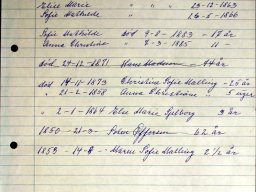 Else Marie " " 23-12-1863
Sofie Mathilde " " 26-5-1866
Sofie Mathilde død 9-8-1883 - 17 år
Anna Christine " 7-3-1885 11 -
død 24-12-1871 Hans Madsen - 44 år
død 14-11-1873 Christine Sofie Malling - 25 år
" 21-2-1858 Anna Christiane 5 uger
" 2-1-1864 Else Marie 3 år
1850-21-3- Peder 62 år
1853-14-8- Maren Sofie Malling 2½ år